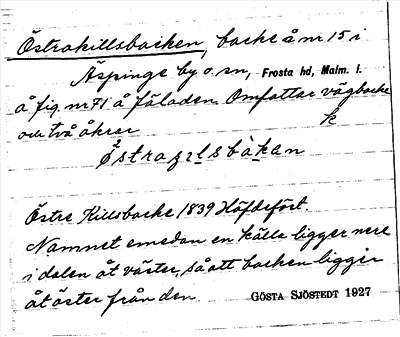 Östrakillsbacken, backe å nr 15 i
Äspinge by o. sn, Frosta hd, Malm. l.
å fig. nr 71 å fäladen. Omfattar vägbacke
och två åkrar
k
Östre Killsbacke 1839 Häfdefört.
Namnet emedan en källa ligger nere
i dalen åt väster, så att backen ligger
åt öster från den.
GÖSTA SJÖSTEDT 1927